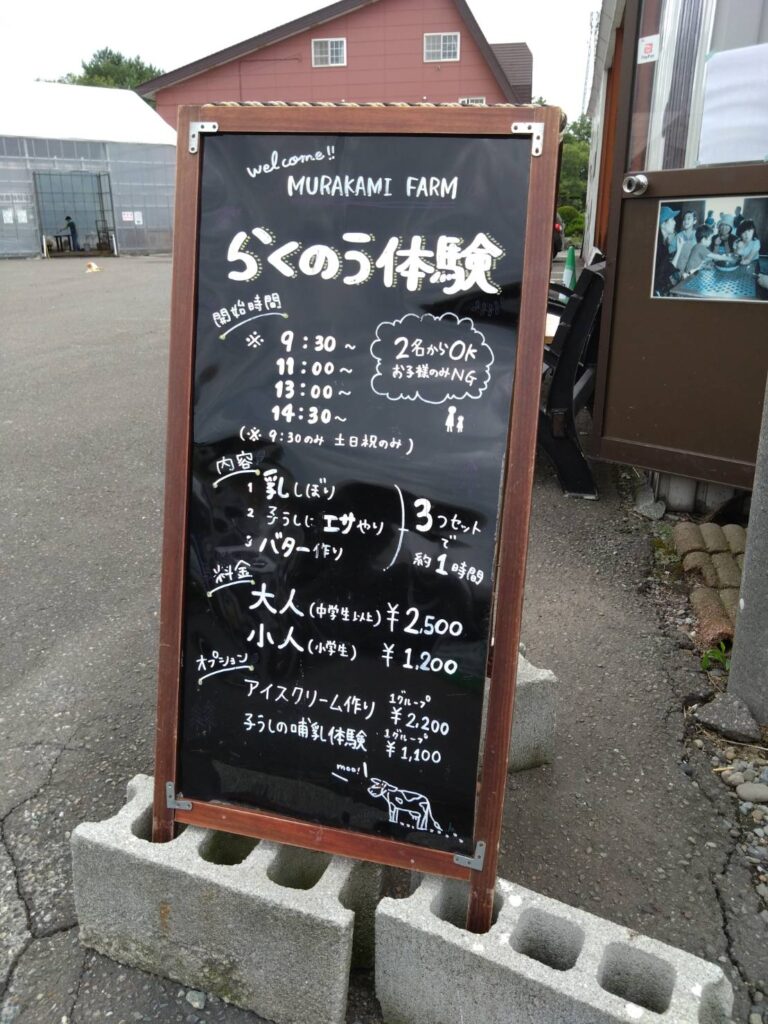 welcome!!
MURAKAMI FARM
らくのう体験
開始時間
※ 9:30~
11:00~
13:00~
14:30~
(※ 9:30のみ 土日祝のみ)
2名からOK
お子様のみNG
内容
1 乳しぼり
2 子うしにエサやり
3 バター作り
3つセット
で
約1時間
料金
大人(中学生以上) ¥2,500
小人(小学生) ¥1,200
オプション
アイスクリーム作り 1グループ ¥2,200
子うしの哺乳体験 1グループ ¥1,100
moo!
PayPay